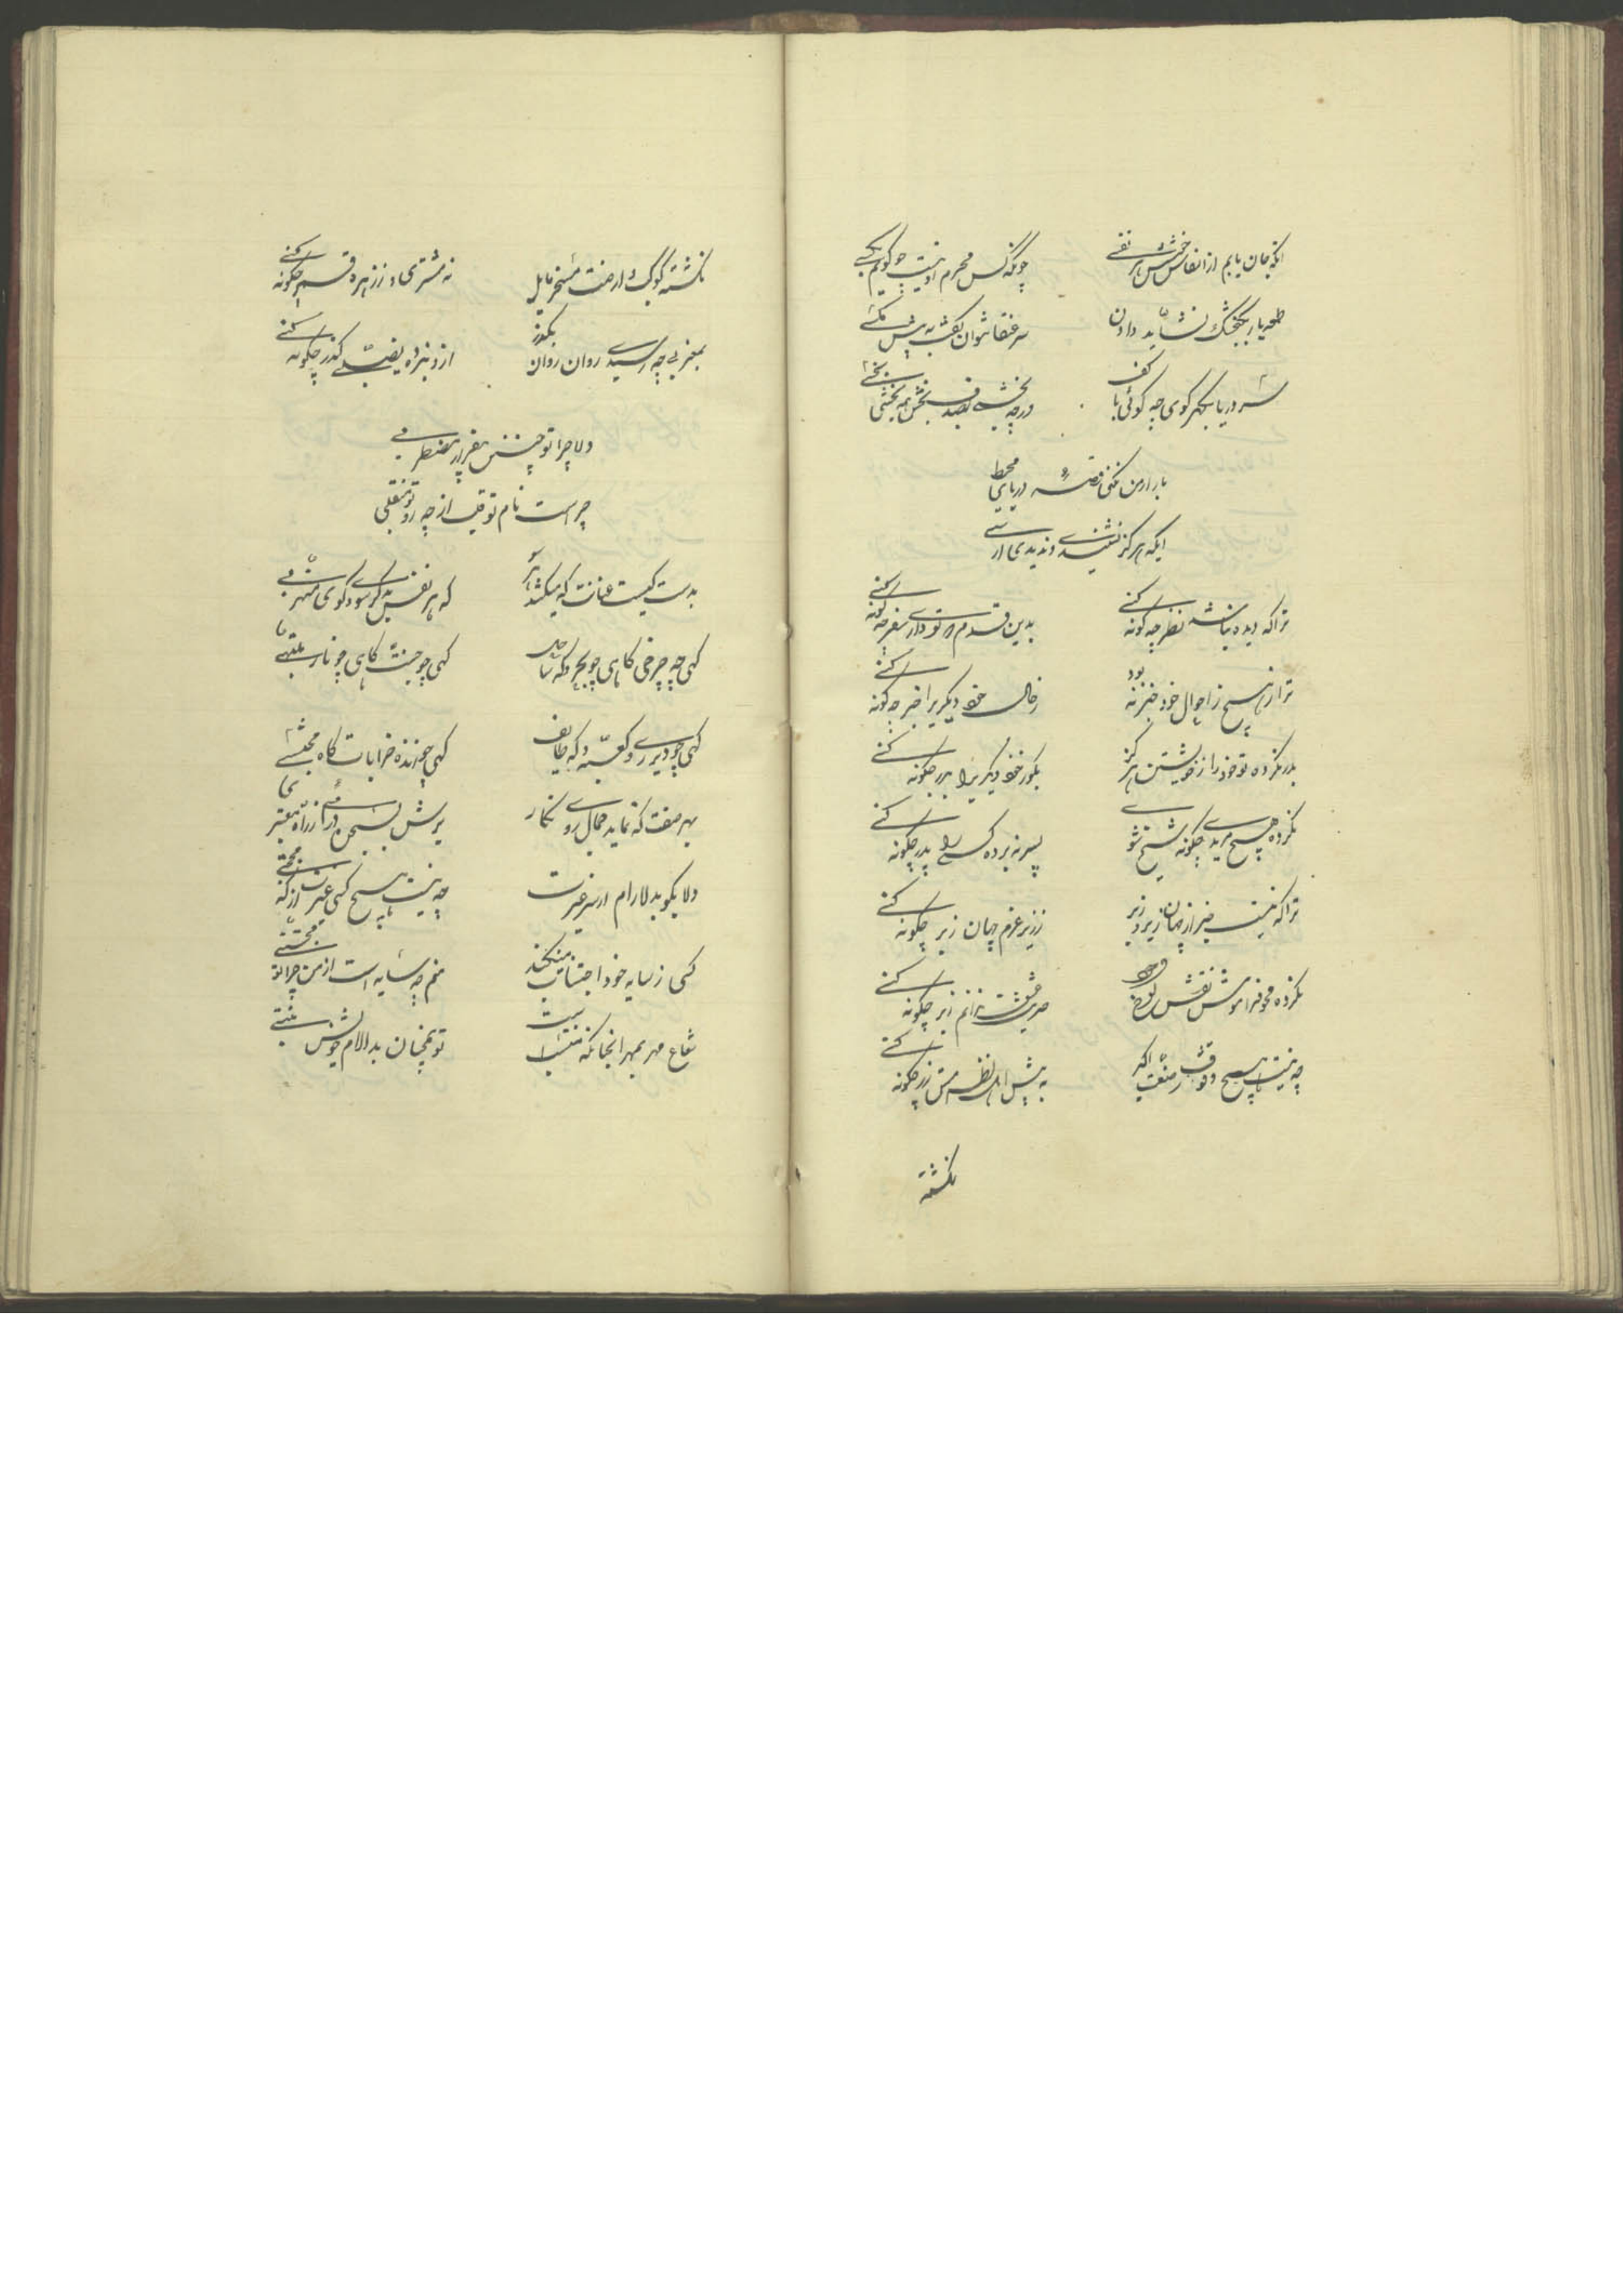 آنکه جان یابم از انفاس خوشش هر نفسی    چونکه کس محرم او نیست چه گویم بکسی
طعمه باز بگنجشک نشاید دادن    سر عنقا نتوان گفت به پیش مگسی
سر دریا بگهر گوی چه گوئی با کف    ور چه بخشی بصدف بخش چه بخشی بخسی
باز از من نکنی قصه دریای محیط
ایکه هرگز نشنیدی و ندیدی ارسی
ترا که دیده نباشد نظر چگونه کنی    بدین قدم که تو داری سفر چگونه کنی
ترا که هیچ ز احوال خود خبر نبود    ز حال خود دیگریرا خبر چگونه کنی
بدر نکرده تو خود را ز خویشتن هرگز    بگو ز خود دیگریرا بدر چگونه کنی
نکرده هیچ مریدی چگونه شیخ شوی    پسر نبرده کسی را پدر چگونه کنی
ترا که نیست خبر از جهان زیر و زبر    ز زیر عزم جهان زبر چگونه کنی
نکرده محو و فراموش نقش لوح وجود    حدیث عشق ندانم ز بر چگونه کنی
چه نیست هیچ وقوفت ز صنعت اکسیر    به پیش اهل نظر مس زر چگونه کنی
نگشته
نگشته کوکب و ارضت مسخر مایل    نه مشتری و نه زهره قمر چگونه کنی
بمغربی چه رسیدی روان روان بگذر    از و نبرده نصیبی گذر چگونه کنی
دلا چرا تو چنین بیقرار و مضطربی
چراست نام تو قلب از چه رو تو منقلبی
بدست کیست عنانت که میکشد هر سو    که هر نفس به گر سو و کوی منشعبی
گهی چه چرخی گاهی چو بحر و گه ساحل    گهی چو جنت و گاهی چو نار ملتهبی
گهی چو دیری و گه کعبه و گه طایف    گهی چو رند خرابات گاه محتسبی
بهر صفت که نماید جمال روی نگار    برش بحسن درآئی ز راه معتبری
دلا بگو بدلارام از سر غیرت    چه نیست هیچ کسی غیر تو از که محتجبی
کسی ز سایه خود اجتناب می نکند    منم چه سایه است از من چرا تو مجتنبی
شعاع مهر بمهر آنجا که منتسب است    تو همچنان بدلارام خویش منتسبی